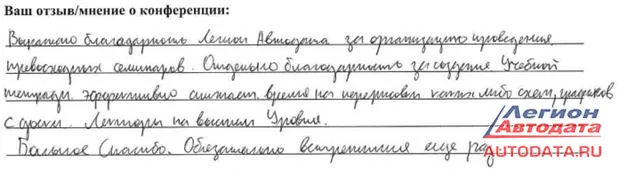 Ваш отзыв/мнение о конференции:
Выражаю благодарность Легион Автодата за организацию проведения
превосходных семинаров. Отдельно благодарность за создание Учебной
тетради. эффективно снижает время на перерисовки каких либо схем, графиков
с доски. Лекторы на высшем Уровне.
Большое Спасибо. Обязательно встретимся еще раз
Легион
Автодата
AUTODATA.RU